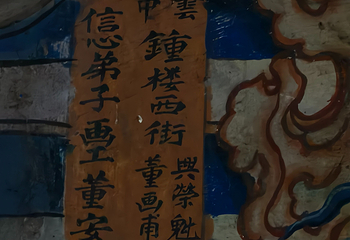 雲
中鍾楼西街
興榮魁
董画甫
信弟子画工董安